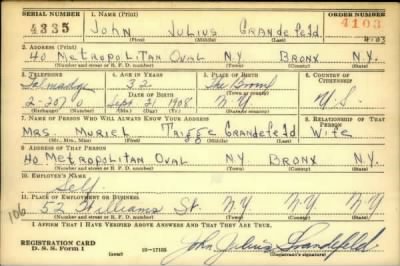 SERIAL NUMBER 1. NAME (Print) ORDER NUMBER
4335 JOHN JULIUS GRANDEFELD 4103
(First) (Middle) (Last) 4103
2. ADDRESS (Print)
40 METROPOLITAN OVAL N.Y. BRONX N.Y.
(Number and street or R. F. D. number) (Town) (County) (State)
3. TELEPHONE 4. AGE IN YEARS 5. PLACE OF BIRTH 6. COUNTRY OF CITIZENSHIP
Talmadge 32 The Bronx
DATE OF BIRTH
Sept. 21 1908 N Y U.S.
(Exchange) (Number) (Mo.) (Day) (Yr.) (State or country)
7. NAME OF PERSON WHO WILL ALWAYS KNOW YOUR ADDRESS 8. RELATIONSHIP OF THAT PERSON
MRS. MURIEL GRANDEFELD WIFE
(Mr., Mrs., Miss) (First) (Middle) (Last)
9. ADDRESS OF THAT PERSON
40 METROPOLITAN OVAL N.Y. BRONX N.Y.
(Number and street or R. F. D. number) (Town) (County) (State)
10. EMPLOYER'S NAME
Self
11. PLACE OF EMPLOYMENT OR BUSINESS
106 52 Williams St. N.Y N.Y N.Y
(Number and street or R. F. D. number) (Town) (County) (State)
I AFFIRM THAT I HAVE VERIFIED ABOVE ANSWERS AND THAT THEY ARE TRUE.
REGISTRATION CARD
D. S. S. Form 1 (over) 16—17105 John Julius Grandefeld
(Registrant's signature)